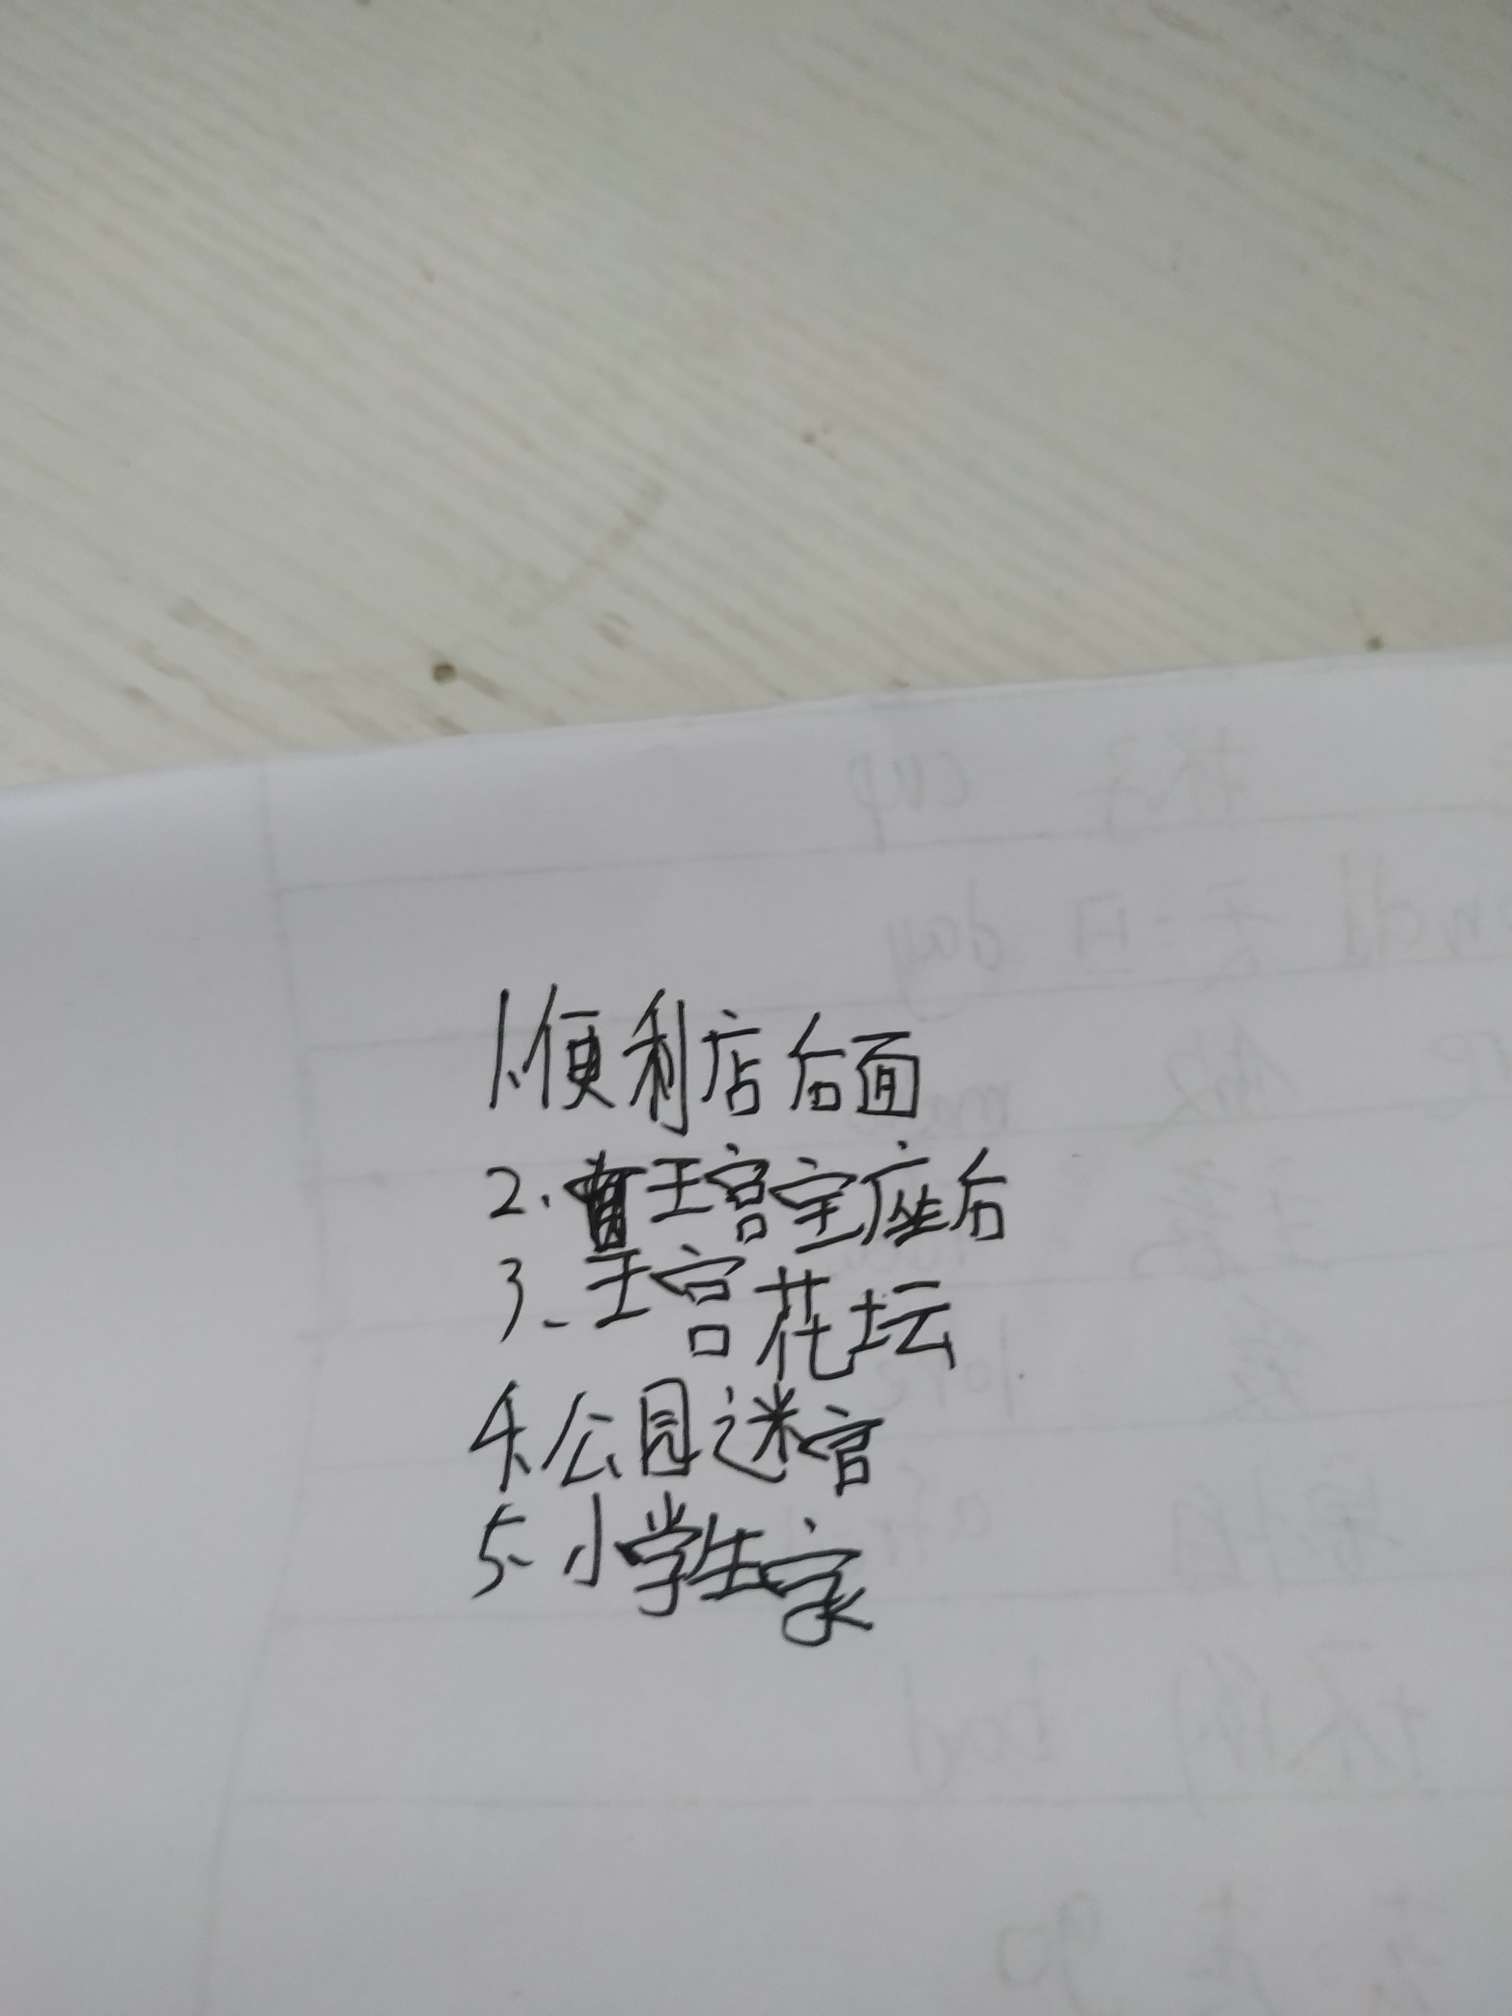 1.便利店后面
2.王宫宝座后
3.王宫花坛
4.公园迷宫
5.小学生家
cup
day